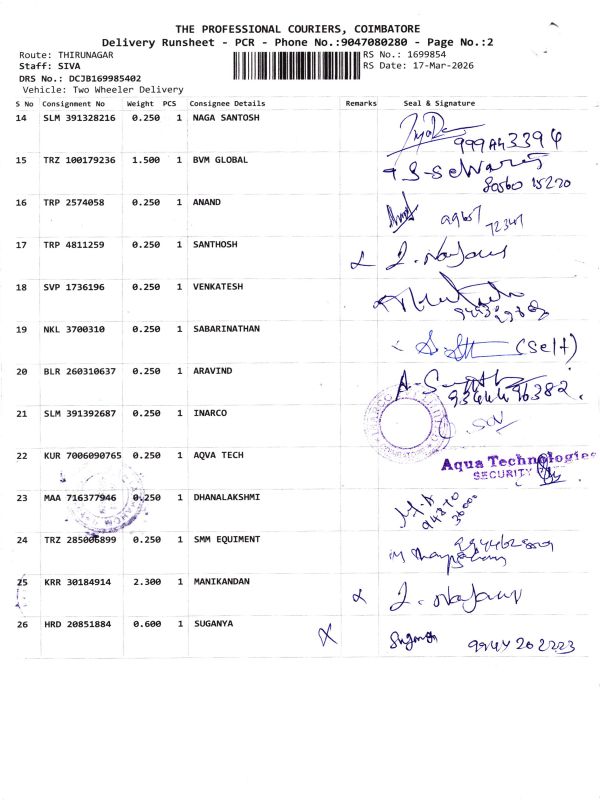 THE PROFESSIONAL COURIERS, COIMBATORE
Delivery Runsheet - PCR - Phone No.:9047080280 - Page No.:2
Route: THIRUNAGAR RS No.: 1699854
Staff: SIVA RS Date: 17-Mar-2026
DRS No.: DCJB169985402
Vehicle: Two Wheeler Delivery
S No Consignment No Weight PCS Consignee Details Remarks Seal & Signature
14 SLM 391328216 0.250 1 NAGA SANTOSH
15 TRZ 100179236 1.500 1 BVM GLOBAL
80560 15220
16 TRP 2574058 0.250 1 ANAND
17 TRP 4811259 0.250 1 SANTHOSH
18 SVP 1736196 0.250 1 VENKATESH
19 NKL 3700310 0.250 1 SABARINATHAN
(Self)
20 BLR 260310637 0.250 1 ARAVIND
21 SLM 391392687 0.250 1 INARCO
22 KUR 7006090765 0.250 1 AQVA TECH
Aqua Technologies
SECURITY
23 MAA 716377946 0.250 1 DHANALAKSHMI
94870
30000
24 TRZ 285006899 0.250 1 SMM EQUIMENT
25 KRR 30184914 2.300 1 MANIKANDAN
26 HRD 20851884 0.600 1 SUGANYA
9244 202223